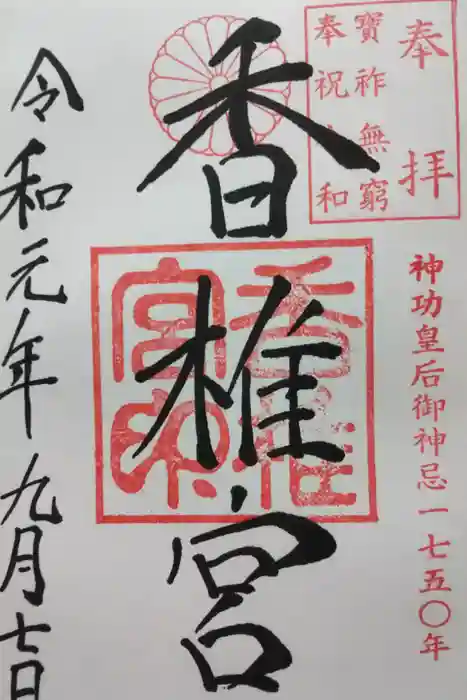 奉拝
寶祚無窮
奉祝令和
神功皇后御神忌一七五〇年
香椎宮
香椎宮印
令和元年九月七日